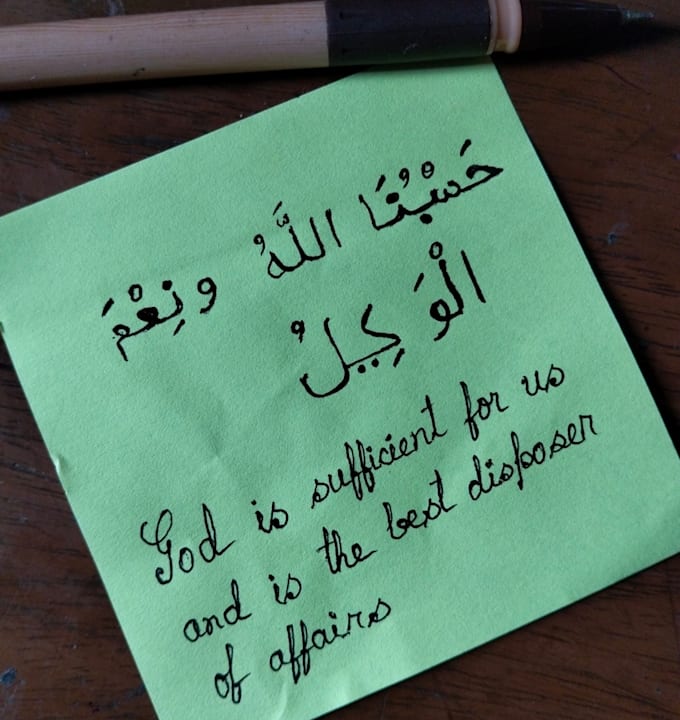 حَسْبُنَا اللَّهُ ونِعْمَ
الْوَكِيلُ
God is sufficient for us
and is the best disposer
of affairs